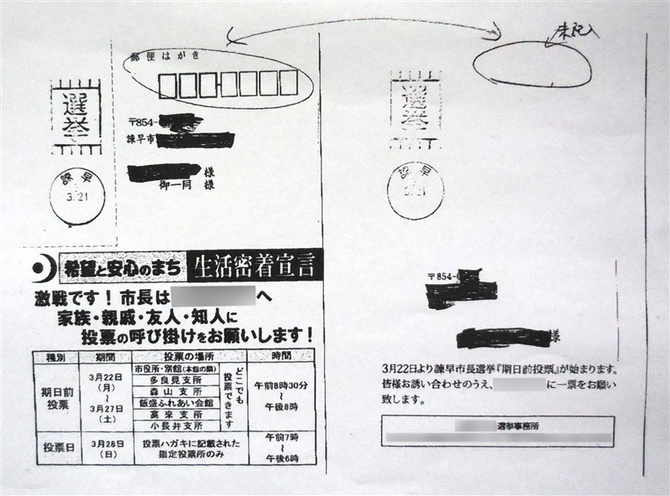 未記入
郵便はがき
選挙
〒854-
諫早市
様
御一同 様
諫早
3.21
希望と安心のまち 生活密着宣言
激戦です!市長は へ
家族・親戚・友人・知人に
投票の呼び掛けをお願いします!
種別 期間 投票の場所 時間
期日前投票 3月22日(月)~3月27日(土)
市役所・別館(本館の隣)
多良見支所
森山支所
飯盛ふれあい会館
高来支所
小長井支所
どこでも投票できます
午前8時30分~午後8時
投票日 3月28日(日) 投票ハガキに記載された指定投票所のみ 午前7時~午後6時
選挙
諫早
3.21
〒854-
3月22日より諫早市長選挙『期日前投票』が始まります。
皆様お誘い合わせのうえ、 に一票をお願い
致します。
選挙事務所